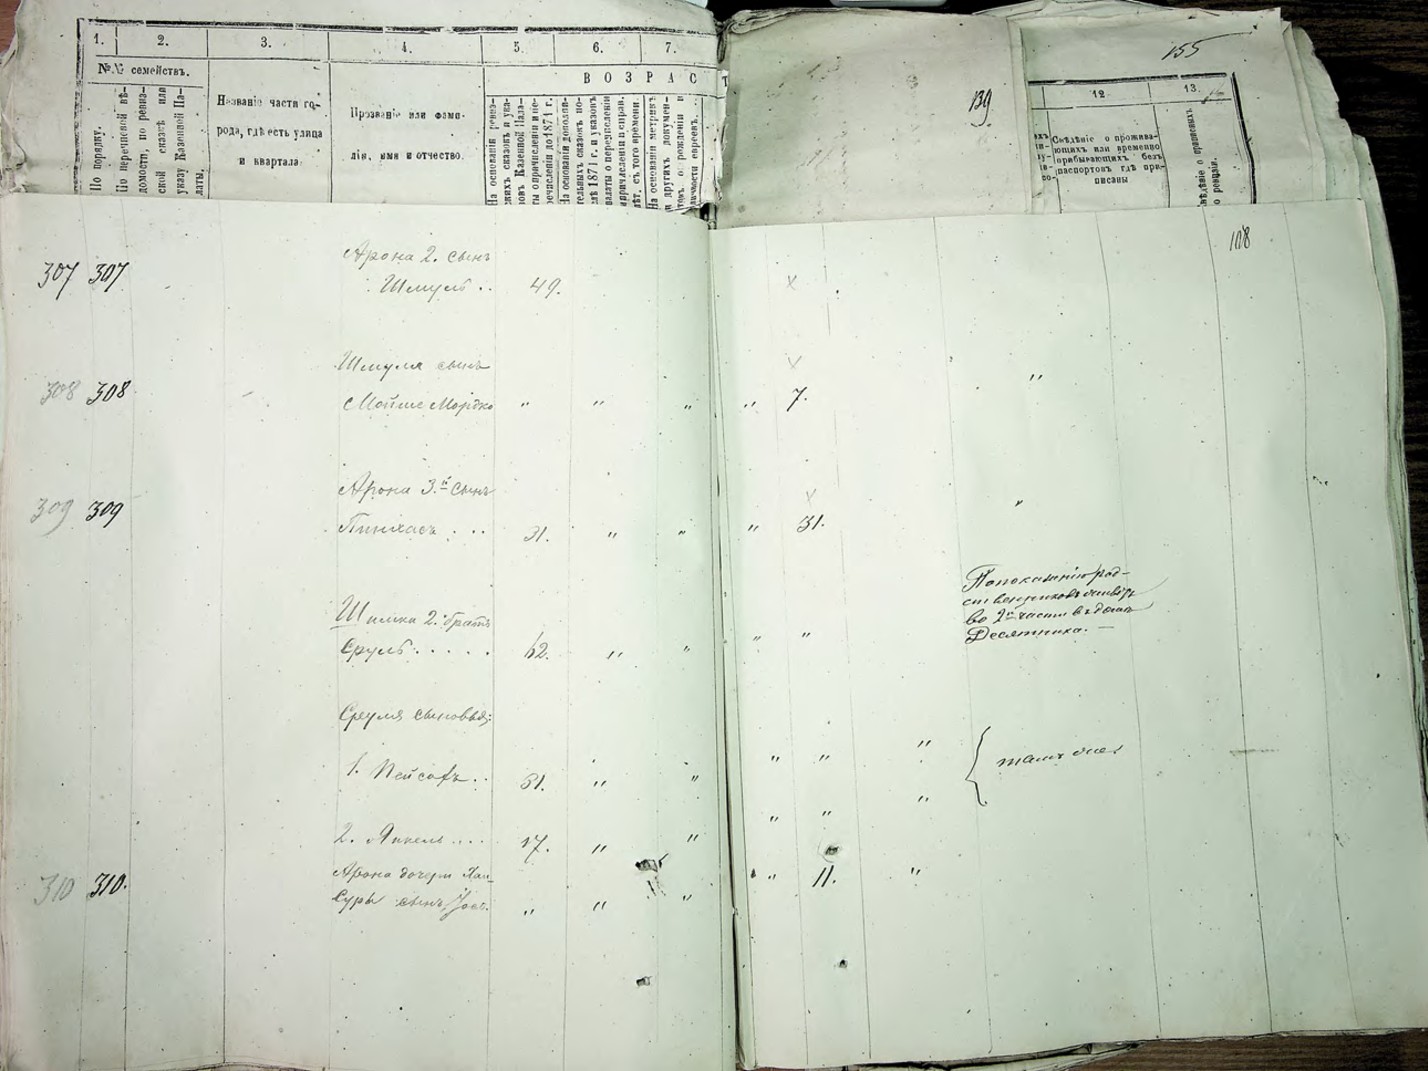 155
139
1. 2. 3. 4. 5. 6. 7. 12 13.
№№ семействъ.
По порядку.
По перечневой вѣ-
домости, по ревиз-
ской сказкѣ или
указу Казенной Па-
латы.
Названіе части го-
рода, гдѣ есть улица
и квартала
Прозваніе или фами-
лія, имя и отчество.
ВОЗРАСТ
На основаніи ревиз-
скихъ сказокъ и ука-
зовъ Казенной Пала-
ты о причисленіи и пе-
речисленіи до 1871 г.
На основаніи дополни-
тельныхъ сказокъ по-
слѣ 1871 г. и указовъ
палаты о перечисленіи
и причисленіи и справ.
лѣт. съ того времени.
На основаніи метрик.
и другихъ докумен-
товъ о рожденіи и
личности евреевъ.
Свѣдѣніе о прожива-
ющихъ или временно
прибывающихъ безъ
паспортовъ гдѣ при-
писаны
108
307 307 Арона 2. сынъ
Шмуль .. 49. x
Шмуля сынъ x
308 308 Мойше Мордко " " " " 7. "
Арона 3.й сынъ x
309 309 Пинхасъ . .. 31. " " " 31. "
Шимки 2. братъ
Сруль . . . . . 62. " " " "
По показанію род-
ственниковъ
во 2й части в домѣ
Десятника. —
Сруля сыновья:
1. Пейсахъ .. 31. " " " " "
тамъ же
2. Янкель .... 17. " " " " "
310 310. Арона дочери Хаи
Суры сынъ Іос. " " " " 11. "